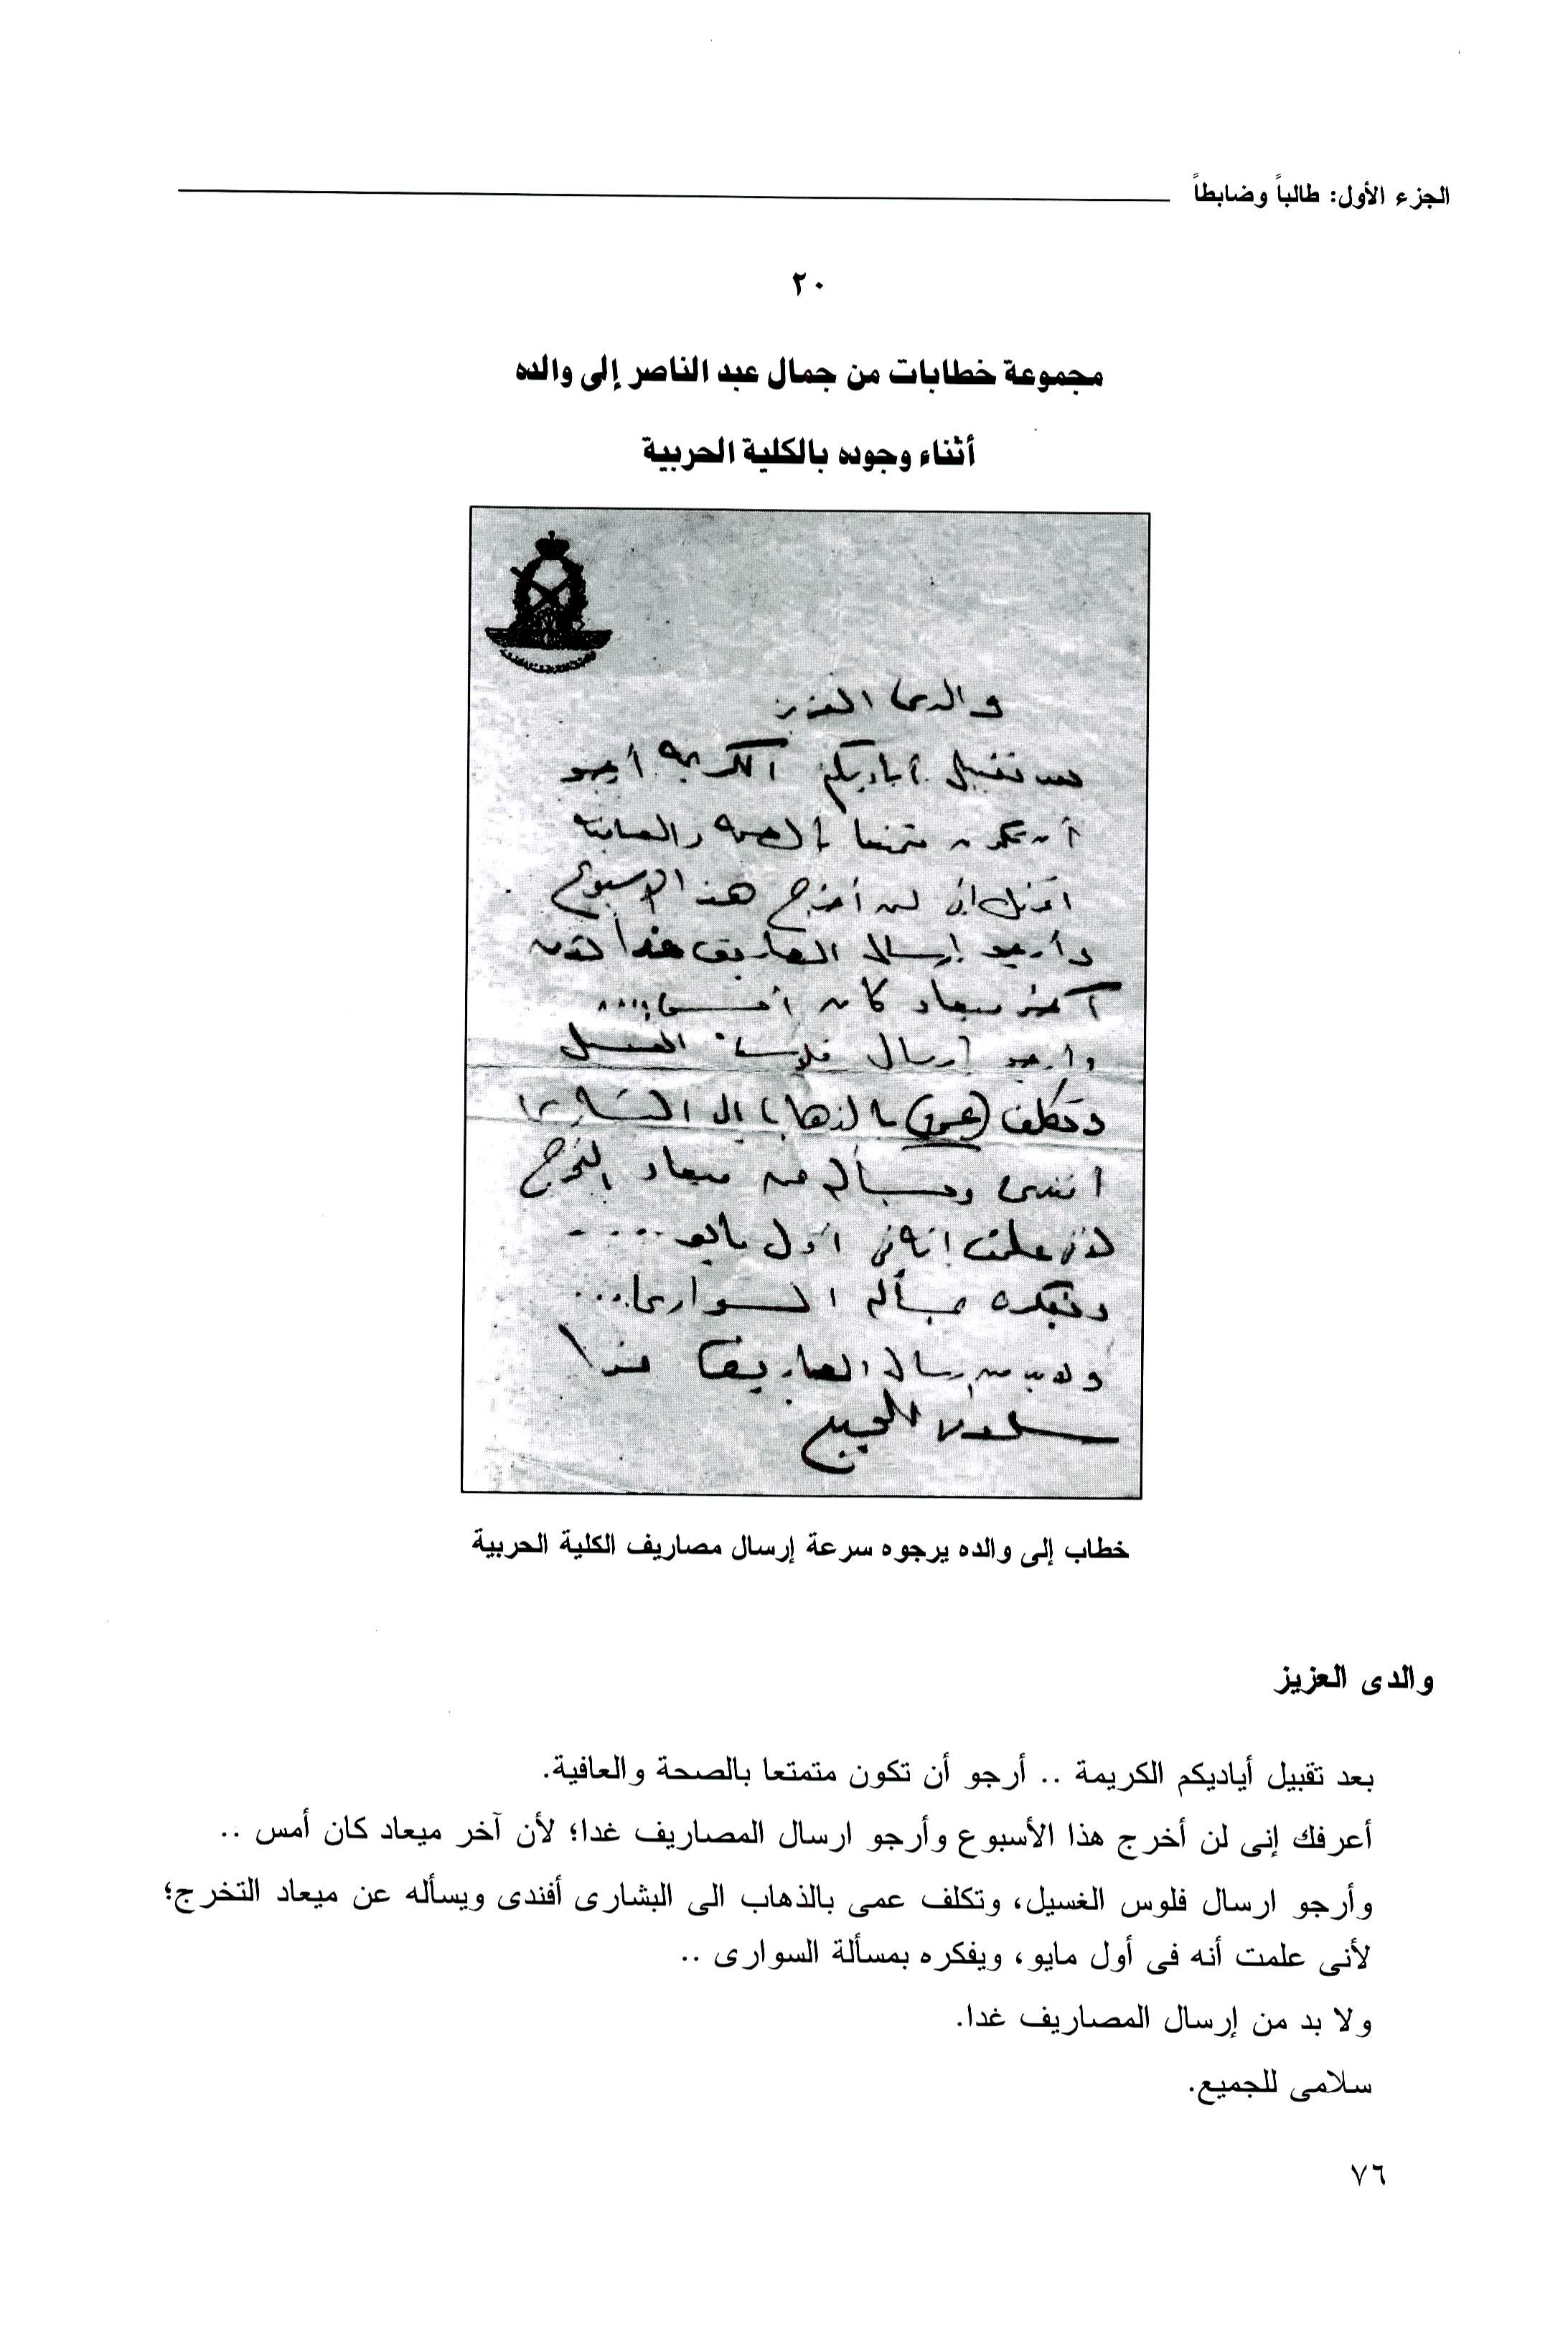 الجزء الأول: طالباً وضابطاً
٢٠
مجموعة خطابات من جمال عبد الناصر إلى والده
أثناء وجوده بالكلية الحربية
والدى العزيز
بعد تقبيل أياديكم الكريمة أرجو
أن تكون متمتعا بالصحة والعافية
اعرفك انى لن أخرج هذا الاسبوع
وأرجو إرسال المصاريف غدا لأن
آخر ميعاد كان أمس....
وأرجو ارسال فلوس الغسيل
وتكلف (عمى) بالذهاب الى البشارى
أفندى ويسأله عن ميعاد التخرج
لأنى علمت انه فى أول مايو....
ويفكره بمسألة السوارى....
ولابد من إرسال المصاريف غدا
سلامى للجميع
خطاب إلى والده يرجوه سرعة إرسال مصاريف الكلية الحربية
والدى العزيز
بعد تقبيل أياديكم الكريمة .. أرجو أن تكون متمتعا بالصحة والعافية.
أعرفك إنى لن أخرج هذا الأسبوع وأرجو ارسال المصاريف غدا؛ لأن آخر ميعاد كان أمس ..
وأرجو ارسال فلوس الغسيل، وتكلف عمى بالذهاب الى البشارى أفندى ويسأله عن ميعاد التخرج؛
لأنى علمت أنه فى أول مايو، ويفكره بمسألة السوارى ..
ولا بد من إرسال المصاريف غدا.
سلامى للجميع.
٧٦